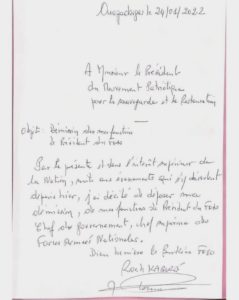 Ouagadougou le 24/01/2022
A Monsieur le Président
du Mouvement Patriotique
pour la sauvegarde et la Restauration
Objet: Démission de mes fonctions
de Président du Faso
Par la présente, et dans l'intérêt supérieur de
la Nation, suite aux évènements qui se déroulent
depuis hier, j'ai décidé de déposer ma
démission, de mes fonctions de Président du Faso
Chef du gouvernement, chef suprême des
Forces Armées Nationales.
Dieu bénisse le Burkina Faso
Roch KABORE